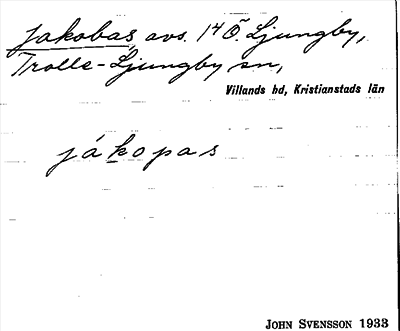 Jakobas, avs. 14 Ö. Ljungby,
Trolle-Ljungby sn,
Villands hd, Kristianstads län
jákopas
JOHN SVENSSON 1933